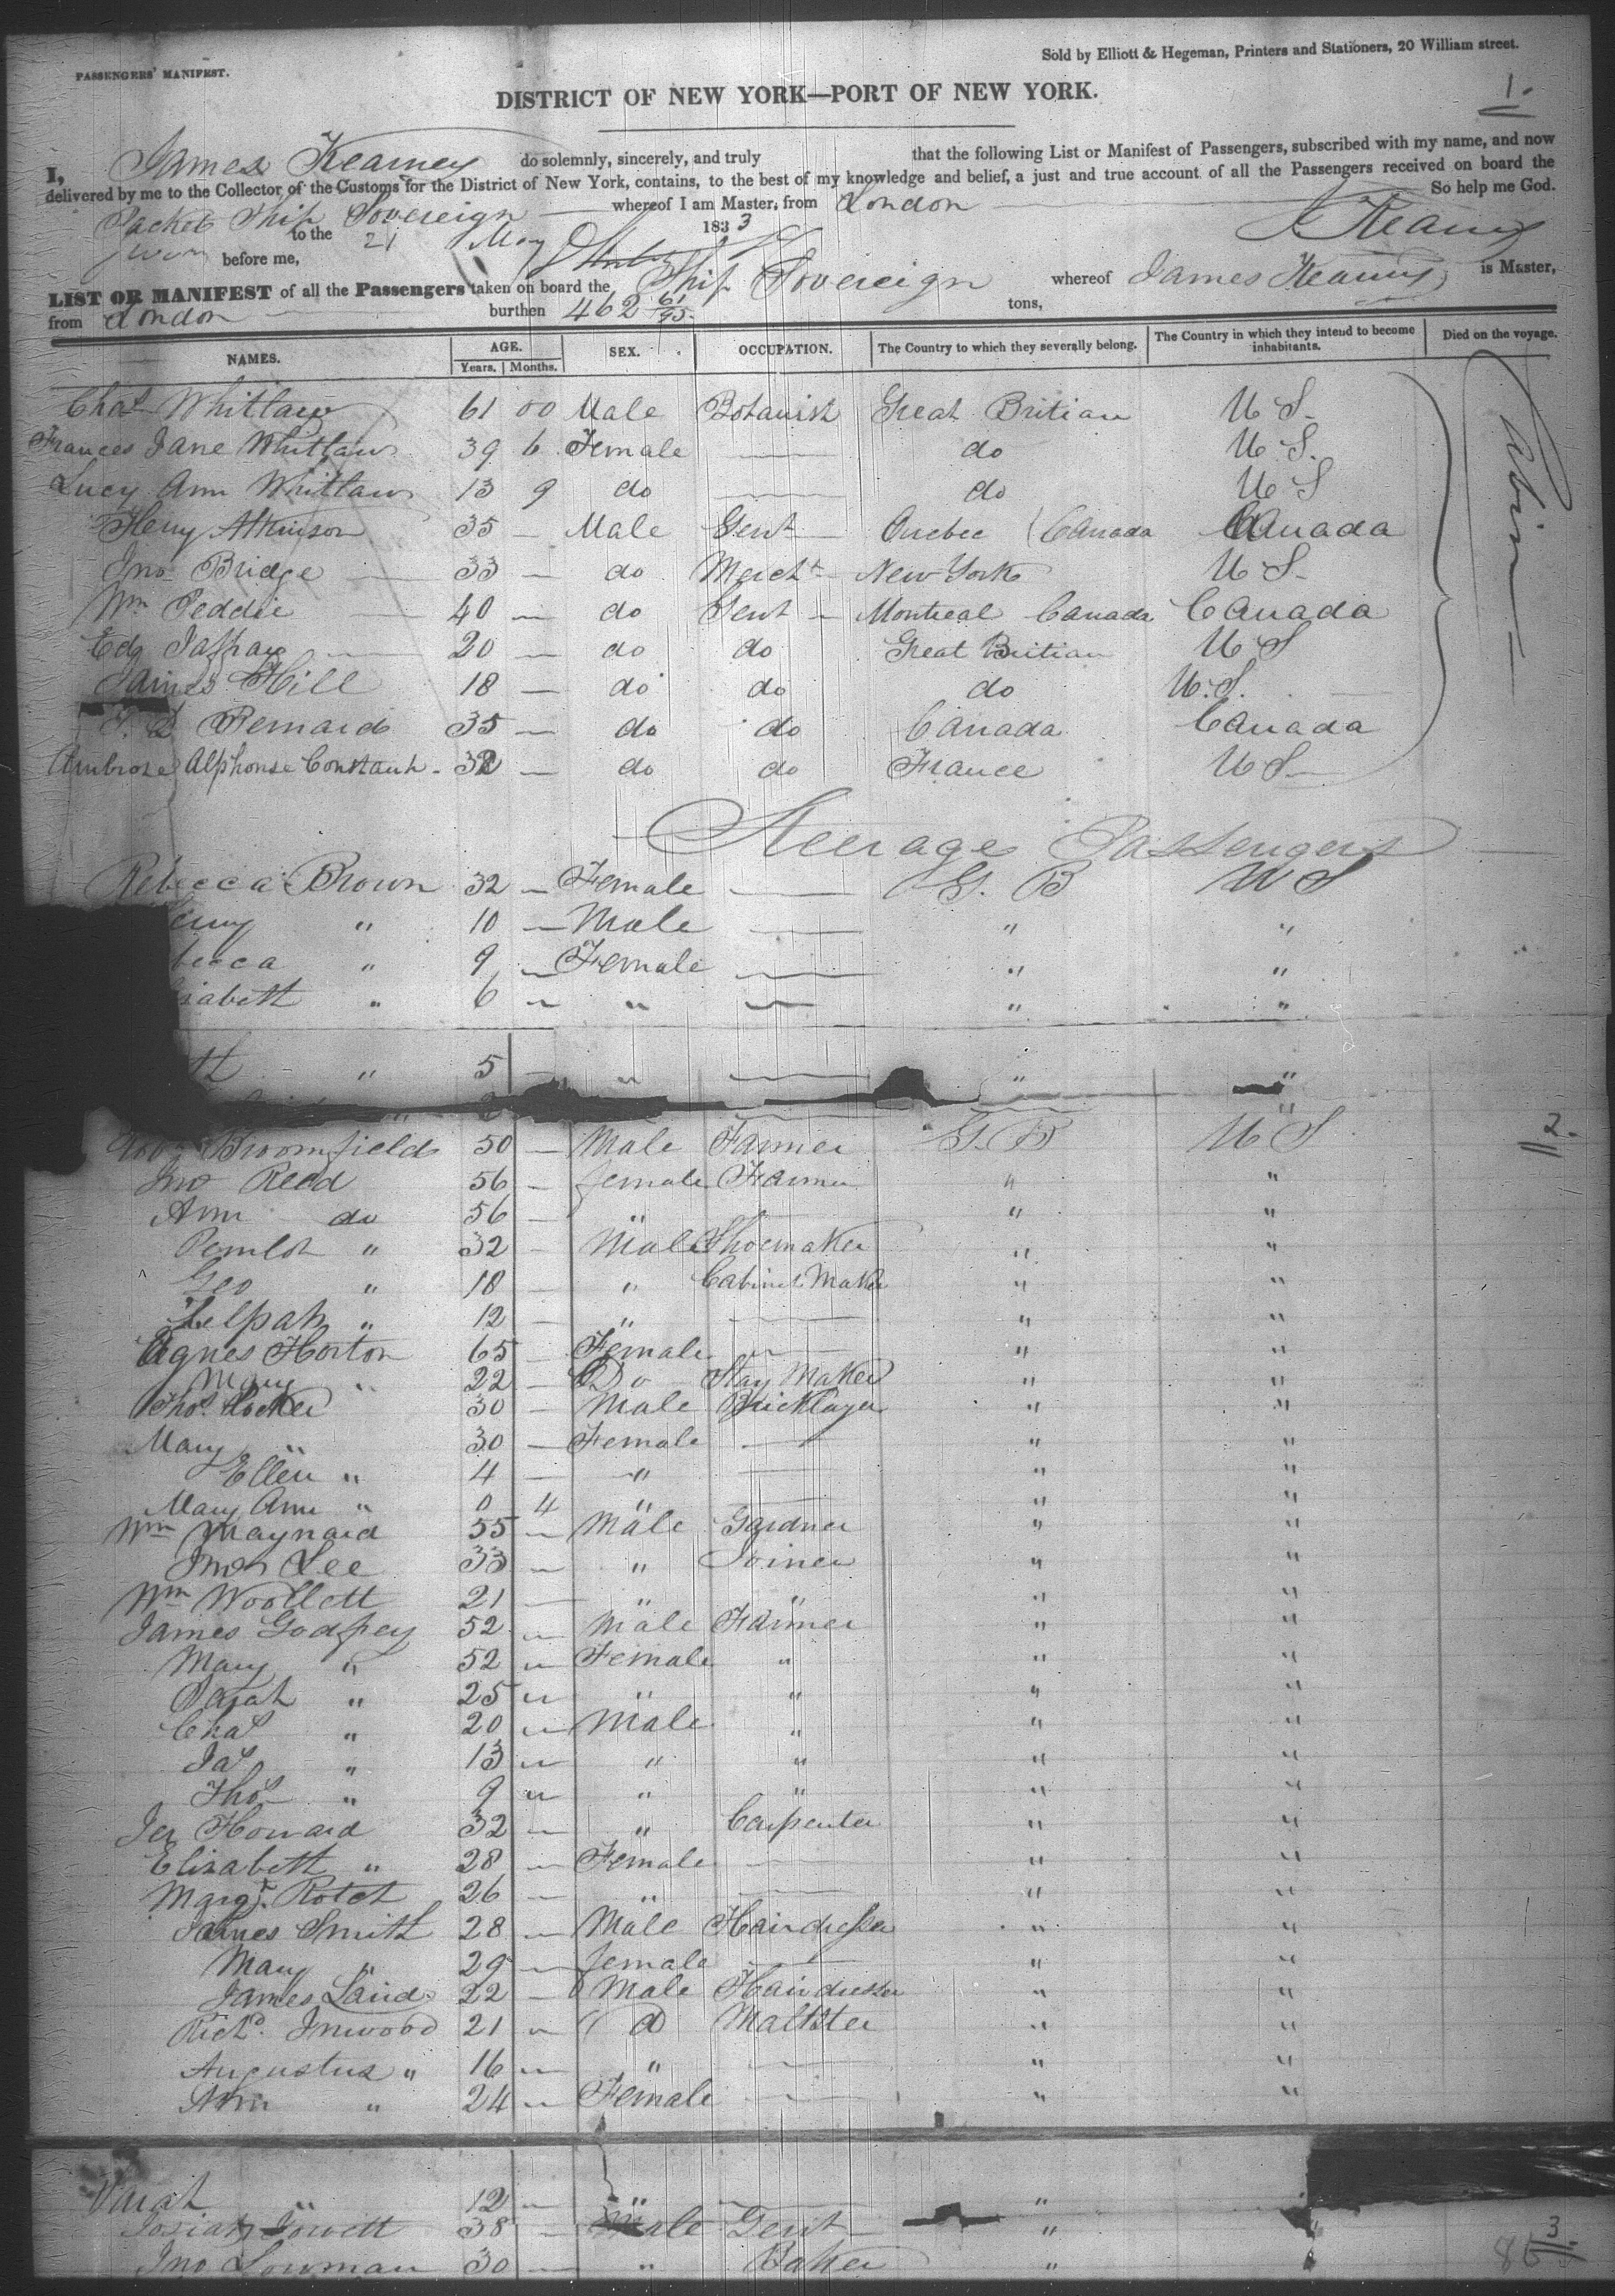 PASSENGERS' MANIFEST.
Sold by Elliott & Hegeman, Printers and Stationers, 20 William street.
1.
DISTRICT OF NEW YORK—PORT OF NEW YORK.
I, James Kearney do solemnly, sincerely, and truly that the following List or Manifest of Passengers, subscribed with my name, and now
delivered by me to the Collector of the Customs for the District of New York, contains, to the best of my knowledge and belief, a just and true account of all the Passengers received on board the
Packet Ship Sovereign whereof I am Master, from London So help me God.
to the 21 May 1833 J Kearney
before me,
LIST OR MANIFEST of all the Passengers taken on board the Ship Sovereign whereof James Kearney is Master,
from London burthen 462 61/95 tons,
NAMES. AGE. SEX. OCCUPATION. The Country to which they severally belong. The Country in which they intend to become inhabitants. Died on the voyage.
Years. Months.
Chas Whitlaw 61 00 Male Botanist Great Britian U S
Frances Jane Whitlaw 39 6 Female do U S.
Lucy Ann Whitlaw 13 9 do do U S
Heny Atkinson 35 Male Gent Quebec Canada Canada
Jno Bridge 33 do Mercht New York U S
Wm Peddie 40 do Gent Montreal Canada Canada
Edg Jaffray 20 do do Great Britian U S
James Hill 18 do do do U.S.
Bernard 35 do do Canada Canada
Ambrose Alphonse Constant 32 do do France U S
Cabin
Steerage Passengers
Rebecca Brown 32 Female G. B U S
" 10 Male " "
becca " 9 Female " "
zabeth " 6 " " "
" 5 " " "
2.
Broomfield 50 Male Farmer G. B U S
Jno Read 56 female Farmer " "
Ann do 56 " " "
32 Male Shoemaker " "
Geo " 18 " Cabinet Maker " "
Zelpah " 12 " " "
Agnes Horton 65 Female " "
Mary " 22 Do Stay Maker " "
Thos. Rocker 30 Male Bricklayer " "
Mary " 30 Female " "
Ellen " 4 " " "
Mary Ann " 0 4 " " "
Wm Maynard 55 Male Gardner " "
Jno Lee 33 " Joiner " "
Wm Woollett 21 " " " "
James Godfrey 52 Male Farmer " "
Mary " 52 Female " " "
Sarah " 25 " " " "
Chas " 20 Male " " "
Jas " 13 " " " "
Thos " 9 " " " "
Jer Howard 32 " Carpenter " "
Elizabeth " 28 Female " "
Margt. Rotch 26 " " "
James Smith 28 Male Hairdresser " "
Mary " 29 female " "
James Laird 22 Male Hairdresser " "
Richd. Inwood 21 Maltster " "
Augustus " 16 " " "
Ann " 24 Female " "
Sarah " 12 " "
Josiah Jowett 38 Male Gent " "
Jno Lowman 30 " Baker "
3.